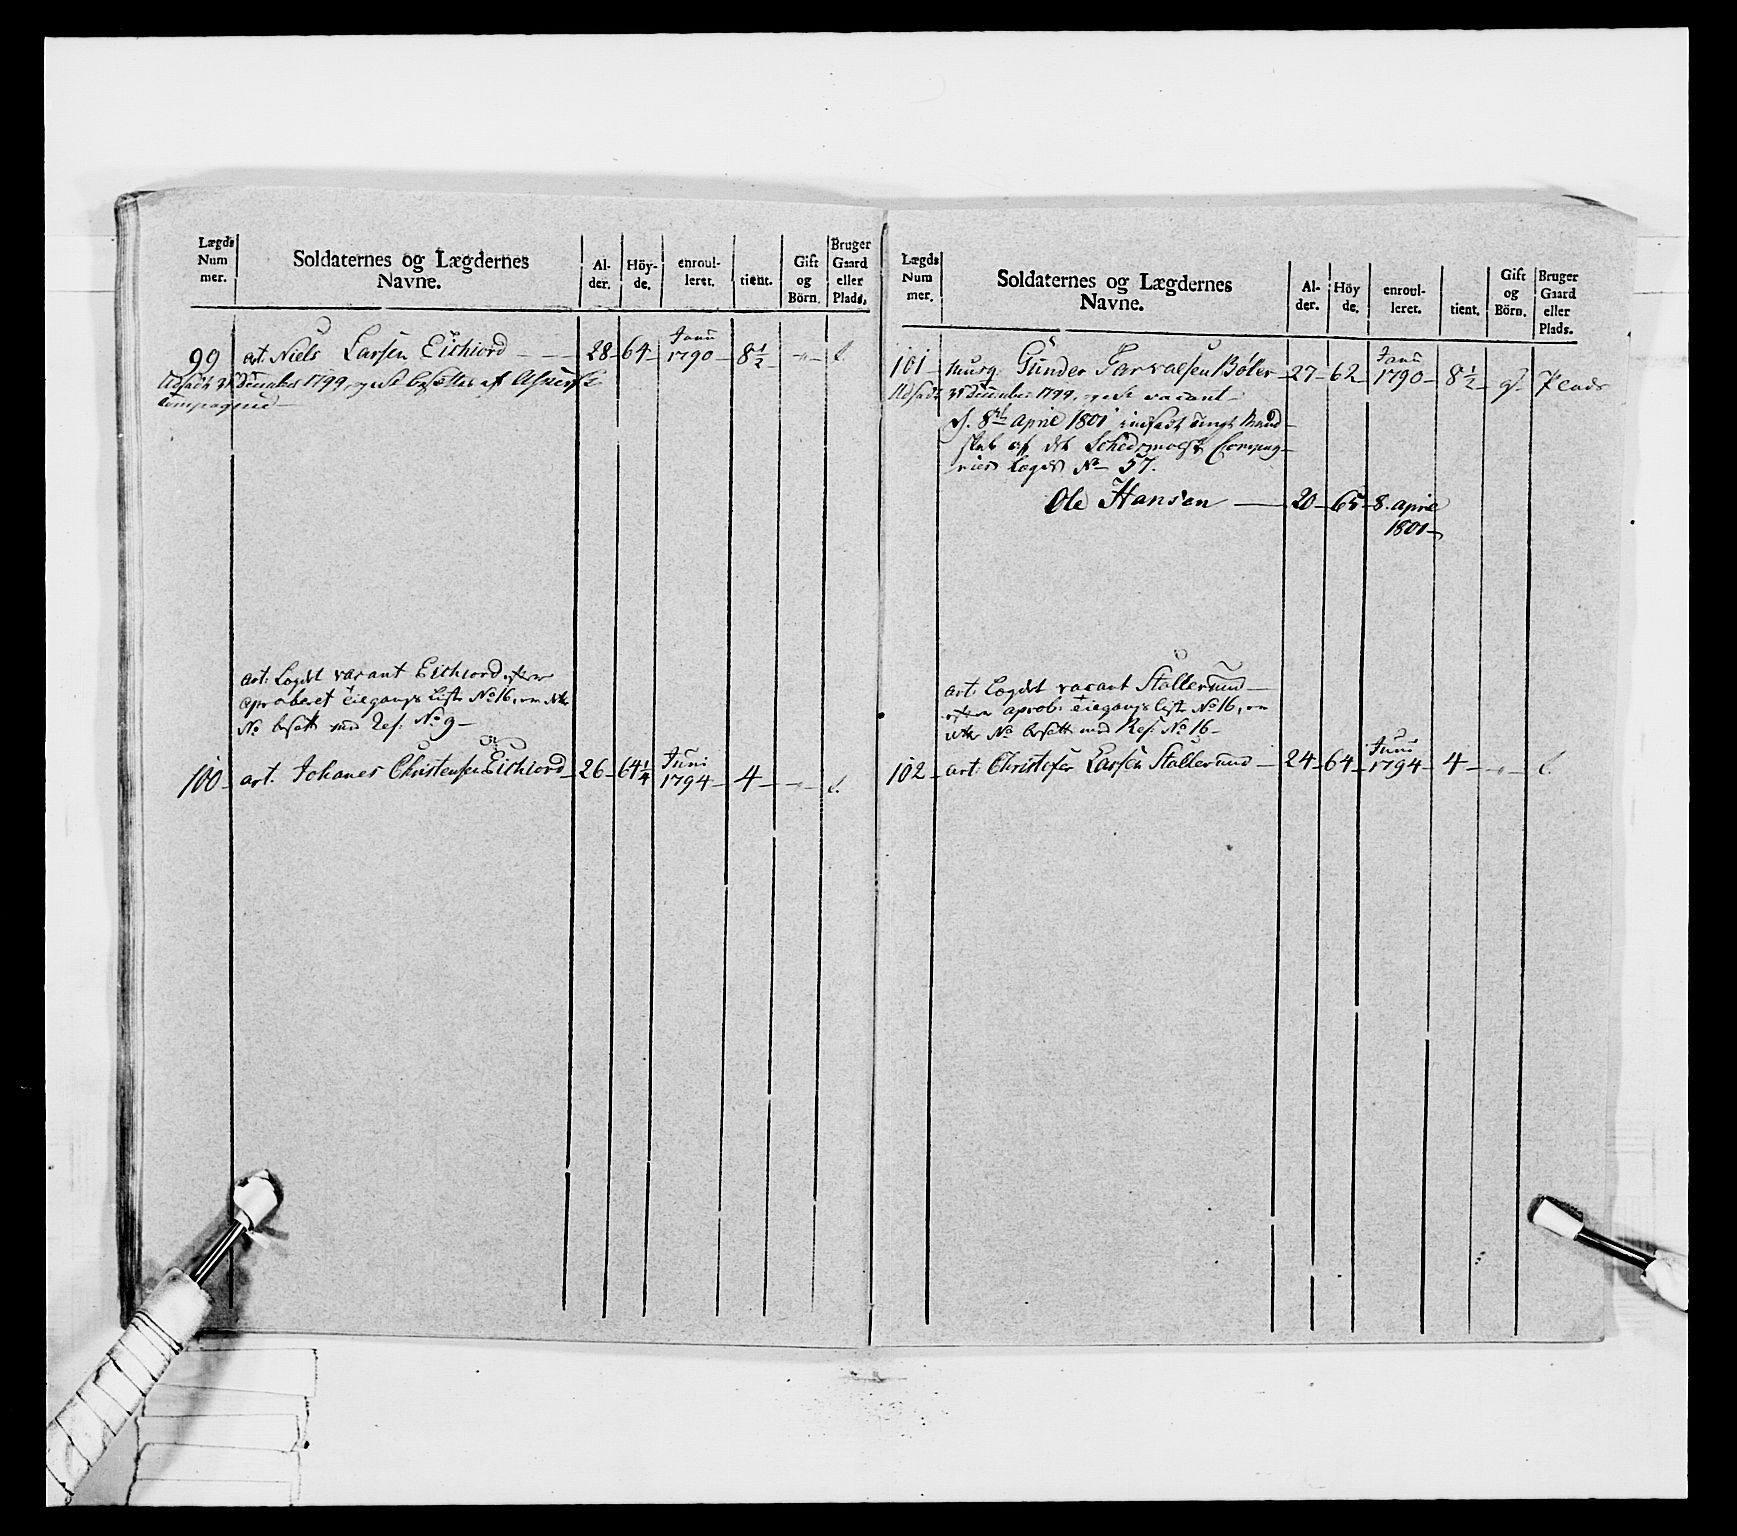 Lægds Nummer. Soldaternes og Lægdernes Navne. Alder. Höyde. enroulleret. tient. Gift og Börn. Bruger Gaard eller Plads.
99 art. Niels Larsen Eichiord 28 64 Junii 1790 8 1/2 - "-
December 1799, besettes af
Compagnie
art: Legdet vacant Eichiord efter
aproberet tilgangs Liste No 16, om dette
No besatt med Ref. No 9
100 art. Johanes Christensen Eichiord 26 64 1/4 Juni 1794 4 - "-
Lægds Nummer. Soldaternes og Lægdernes Navne. Alder. Höyde. enroulleret. tient. Gift og Börn. Bruger Gaard eller Plads.
101 musq. Gunder Tarvalsen Böler 27 62 Junii 1790 8 1/2 gt Plads
31 December 1799, vacant
d. 8de April 1801 indsadt ungt Mand-
skab af det Schedsmoeske Compag-
nies Legd No 57.
Ole Hansen 20 65 8. april
1801
art: Legdet vacant Stallerund
efter aprob: tilgangs Liste No 16, om
dette No besatt med Ref. No 16
102 art: Christofer Larsen Stallerund 24 64 Juni 1794 4 - "-